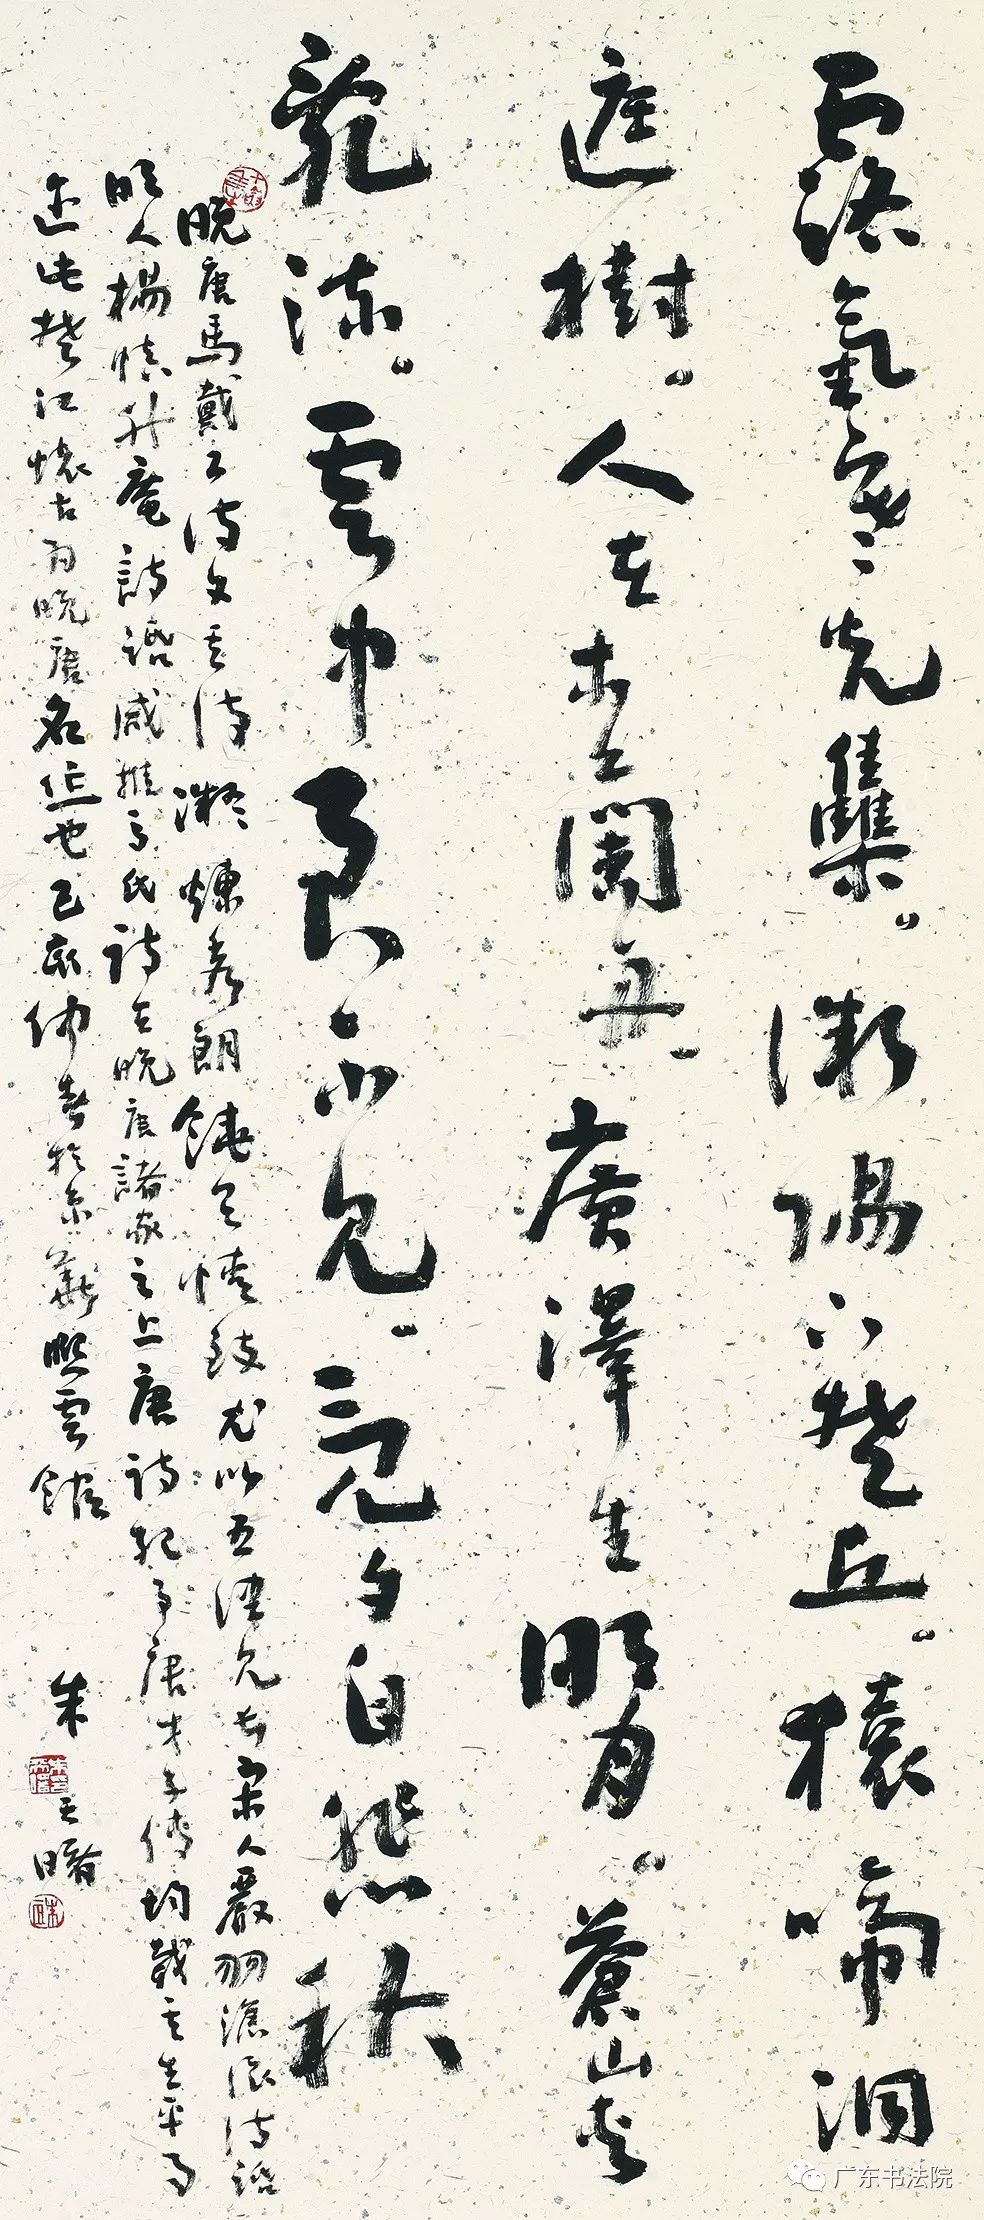 露氣寒光集。微陽下楚丘。猿啼洞
庭樹。人在木蘭舟廣澤生明月。蒼山夾
亂流。雲中君不見。竟夕自悲秋
晚唐馬戴工詩文其詩凝煉秀朗饒含情致尤以五律見長宋人嚴羽滄浪詩話
明人楊慎升庵詩話咸推馬氏詩在晚唐諸家之上唐詩紀事唐才子傳均載其生平事
迹此楚江懷古為晚唐名作也己亥仲春於京華熙雲館 朱天曙
广东书法院